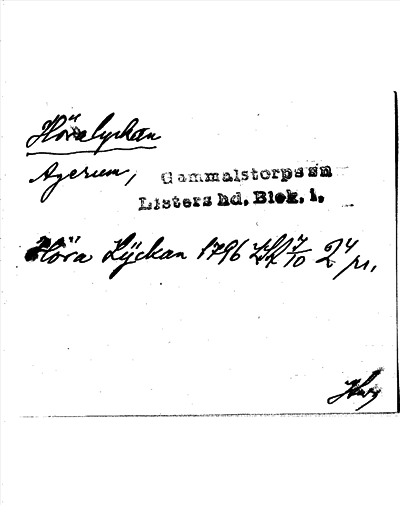 Höralyckan
Agerum, Gammalstorps sn
Listers hd. Blek. l.
Höra Lÿckan 1796 LSA 7/10 24